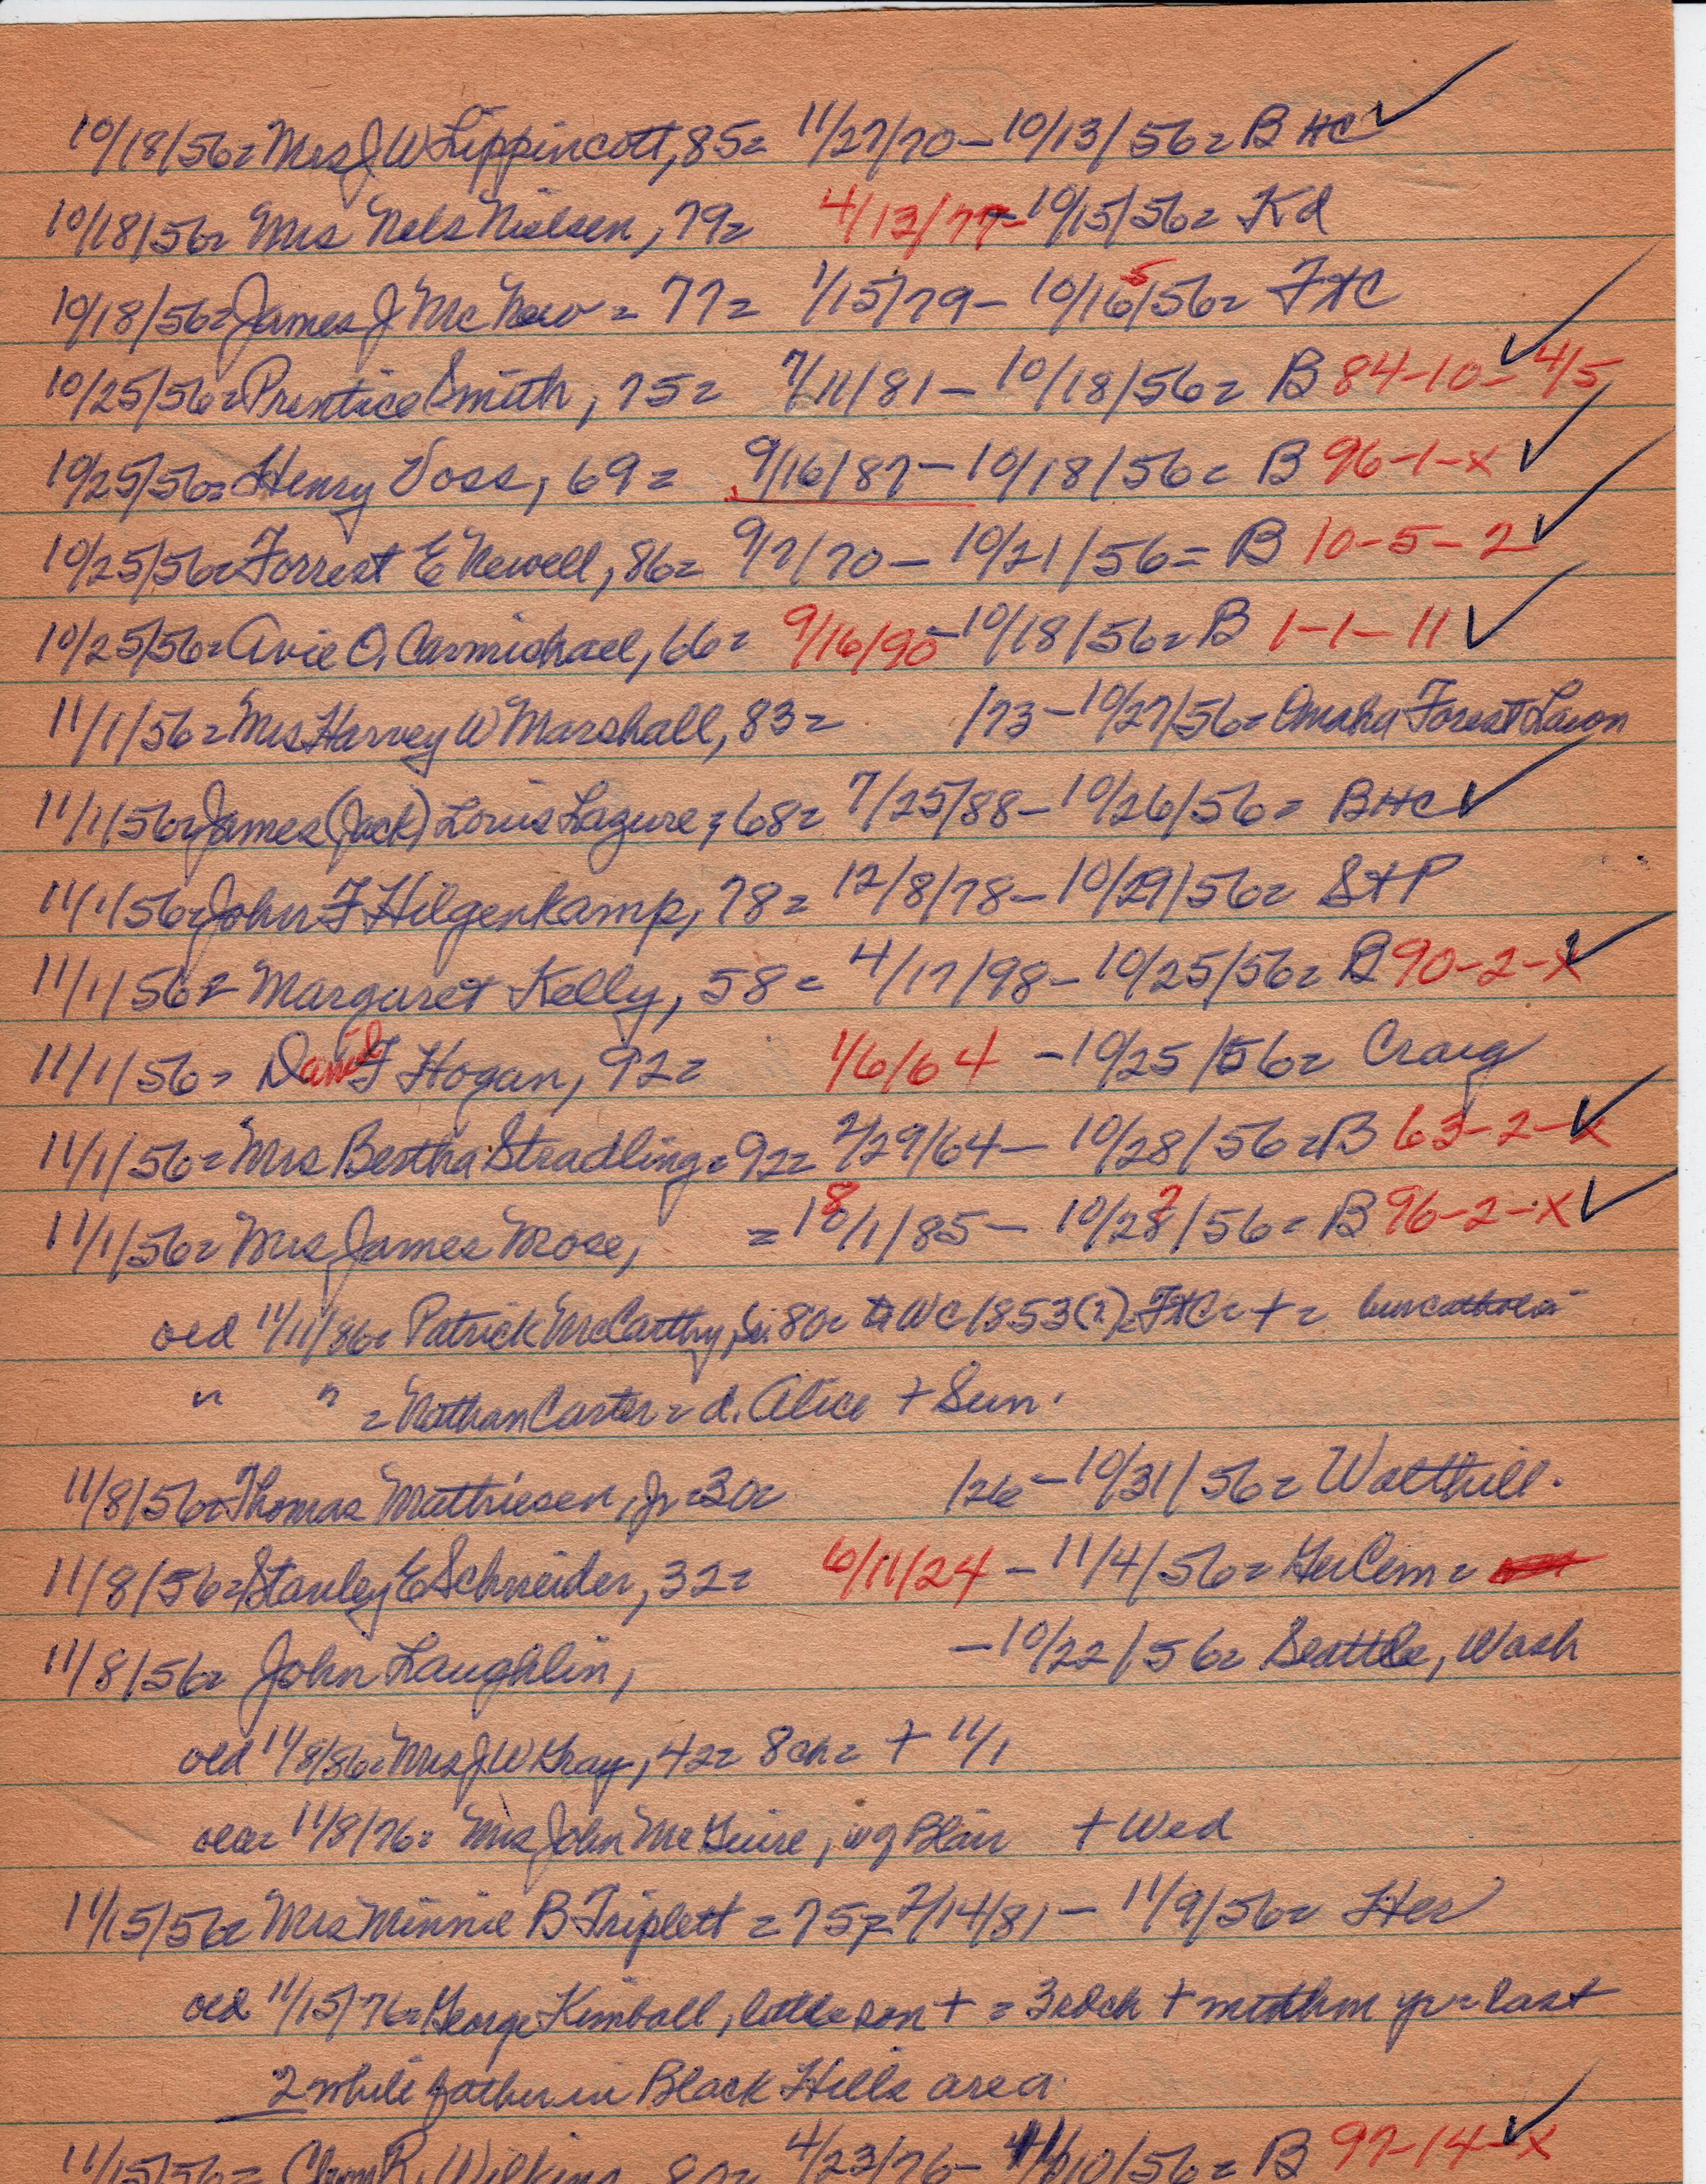 10/18/56= Mrs J W Lippincott, 85= 11/27/70 - 10/13/56= B HC ✓
10/18/56= Mrs Nels Nielsen, 79= 4/13/77 - 10/15/56= Kd
10/18/56= James J McNew = 77= 1/15/79 - 10/16/56= FtC
10/25/56= Prentice Smith, 75= 7/11/81 - 10/18/56= B 84-10-4/5 ✓
10/25/56= Henry Voss, 69= 9/16/87 - 10/18/56= B 96-1-x ✓
10/25/56= Forrest E Newell, 86= 9/7/70 - 10/21/56= B 10-5-2 ✓
10/25/56= Avie O. Carmichael, 66= 9/16/90 - 10/18/56= B 1-1-11 ✓
11/1/56= Mrs Harvey W Marshall, 83= /73 - 10/27/56= Omaha Forest Lawn
11/1/56= James (Jack) Louis Lazure, 68= 7/25/88 - 10/26/56= BHC ✓
11/1/56= John F Hilgenkamp, 78= 12/8/78 - 10/29/56= StP
11/1/56= Margaret Kelly, 58= 4/17/98 - 10/25/56= B 90-2-x ✓
11/1/56= Daniel F Hogan, 92= 1/6/64 - 10/25/56= Craig
11/1/56= Mrs Bertha Stradling= 92= 2/29/64 - 10/28/56= B 63-2-x ✓
11/1/56= Mrs James Rose, = 10/1/85 - 10/28/56= B 96-2-x ✓
old 11/11/86= Patrick McCarthy, Sr. 80= WC 1853(?)= FtC= + =
" " = Nathan Carter= d. Alice + Sun.
11/8/56= Thomas Mathiesen, Jr= 30= /26 - 10/31/56= Walthill.
11/8/56= Stanley E Schneider, 32= 6/11/24 - 11/4/56= Cem=
11/8/56= John Laughlin, - 10/22/56= Seattle, Wash
old 11/8/86= Mrs J W Gray, 42= 8ch= + 11/1
old= 11/8/76= Mrs John McGuire, w of Blair + Wed
11/15/56= Mrs Minnie B Triplett = 75= 2/14/81 - 11/9/56= Her
old 11/15/76= George Kimball, little son + = 3rd ch + yr= last
2 while father in Black Hills area.
11/15/56= R. Wilkins, 80= 4/23/76 - 11/10/56= B 97-14-x ✓